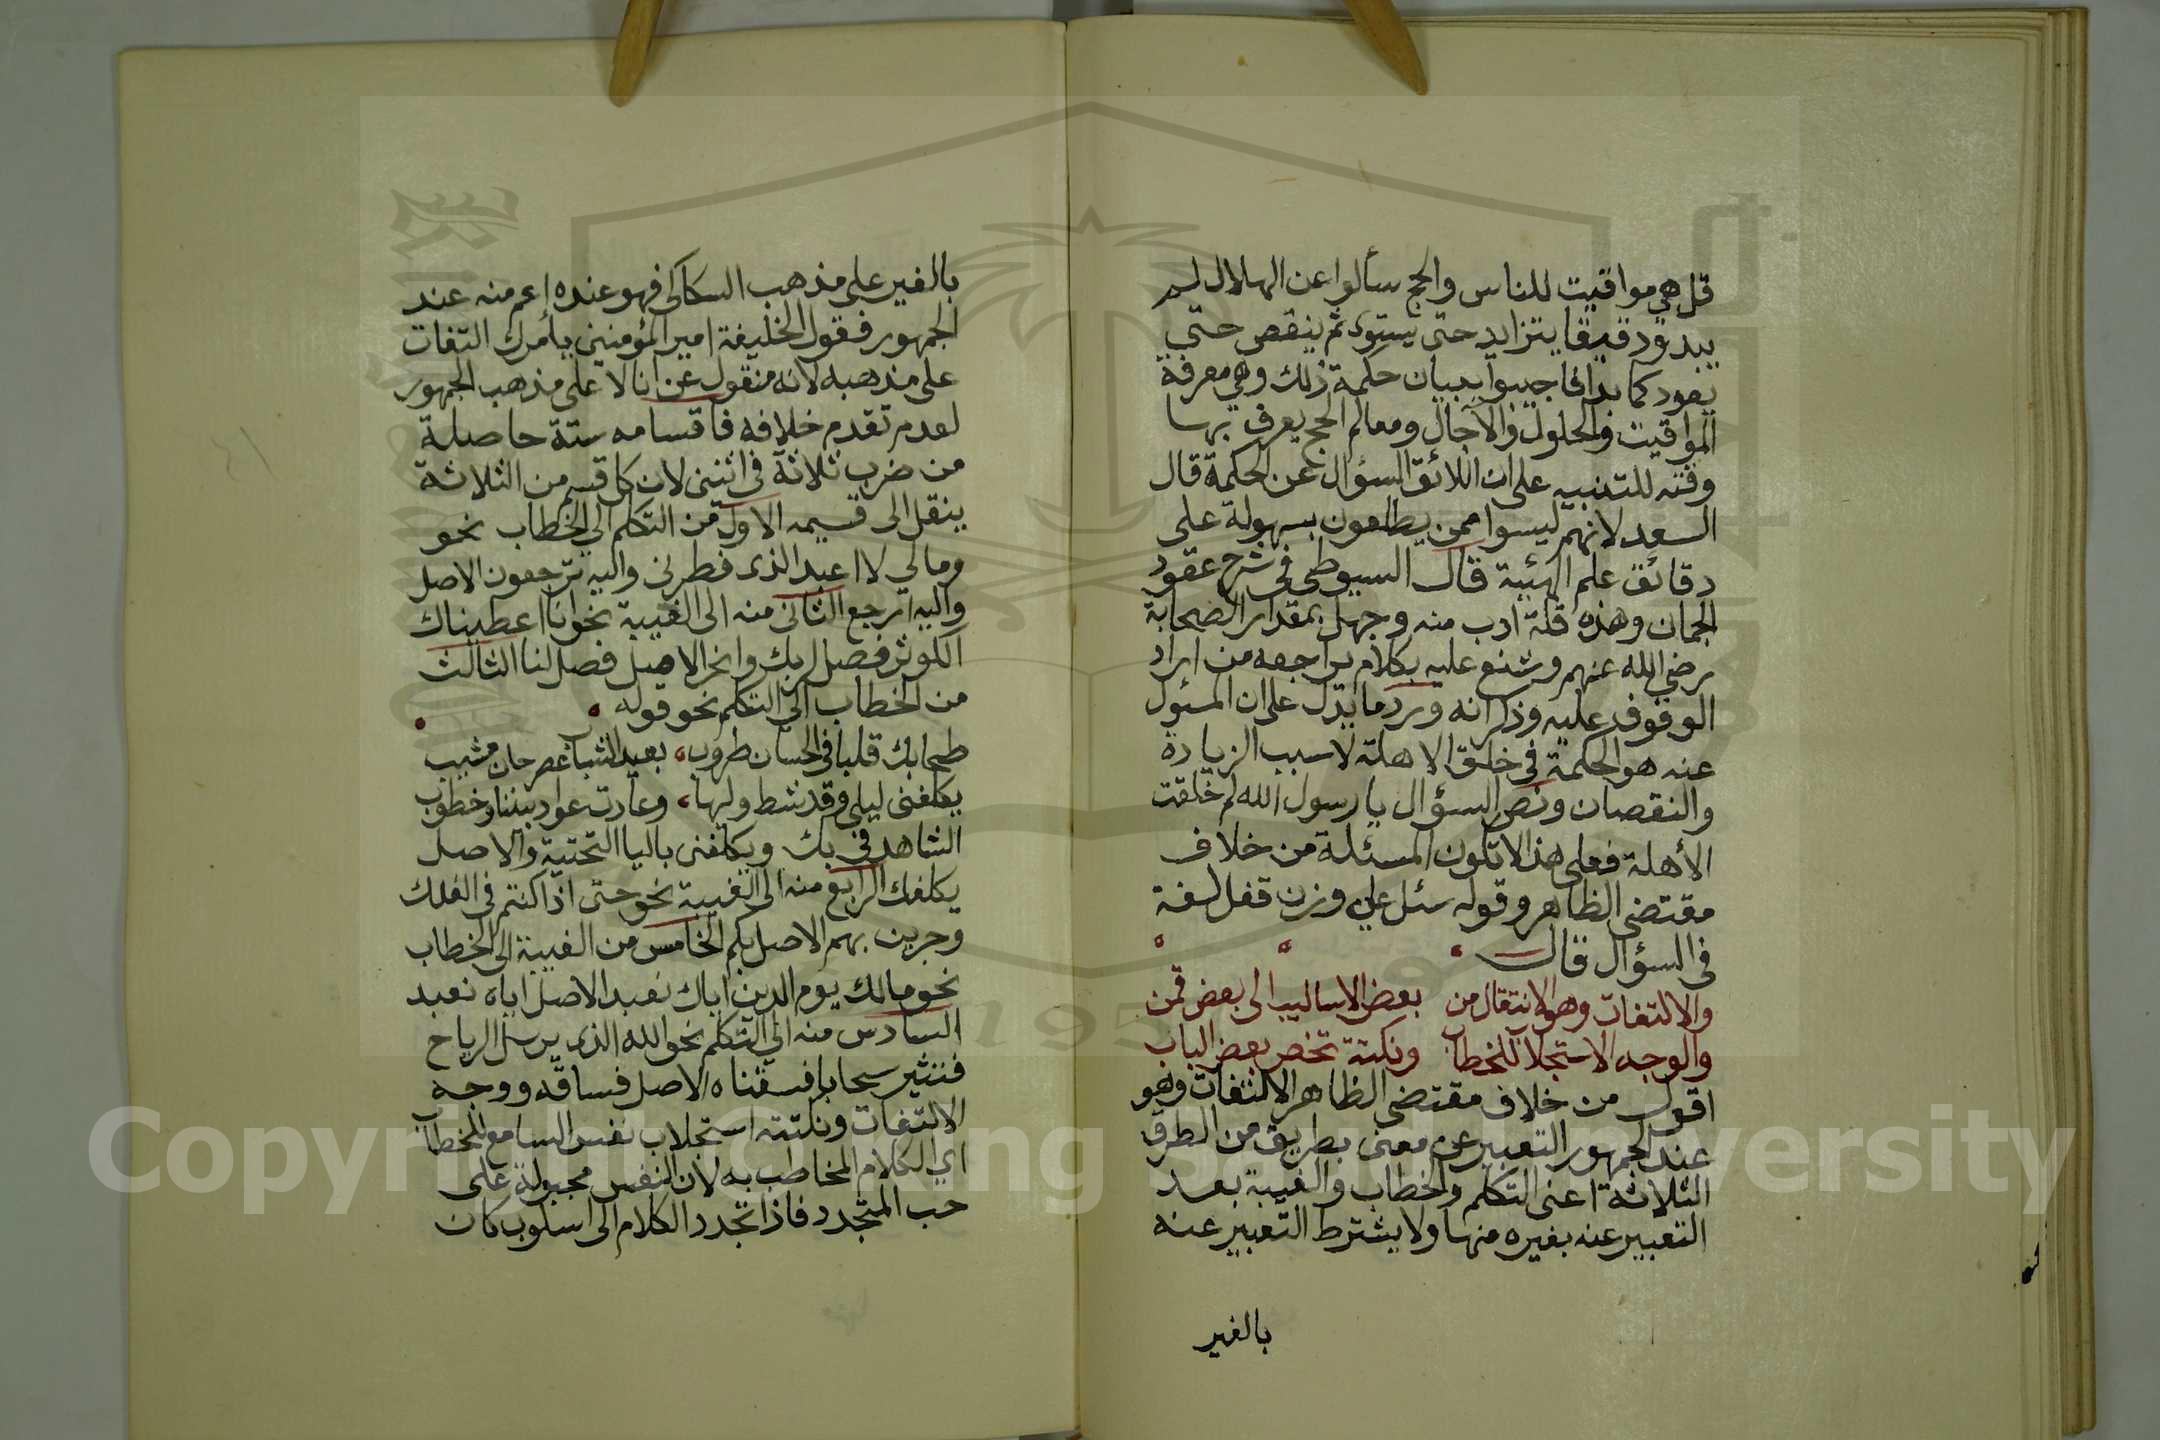 قل هي مواقيت للناس والحج سألوا عن الهلال لم
يبدو دقيقا يتزايد حتى يستوي ثم ينقص حتى
يعود كما بدا فاجيبوا ببيان حكمة ذلك وهي معرفة
المواقيت والحلول والآجال ومعالم الحج يعرف بها
وقته للتنبيه على ان اللائق السؤال عن الحكمة قال
السعد لانهم ليسوا ممن يطلعون بسهولة على
دقائق علم الهيئة قال السيوطي في شرح عقود
الجمان وهذه قلة ادب منه وجهل بمقدار الصحابة
رضي الله عنهم وشنع عليه بكلام يراجعه من اراد
الوقوف عليه وذكر انه ورد ما يدل على ان المسئول
عنه هو الحكمة في خلق الاهلة لا سبب الزيادة
والنقصان ونص السؤال يا رسول الله لم خلقت
الأهلة فعلى هذا لا تكون المسئلة من خلاف
مقتضى الظاهر وقوله سئل على وزن قفل لغة
في السؤال قال
والالتفات وهو الانتقال من بعض الاساليب الى بعض قمن
والوجه الاستجلاب للخطاب ونكتة تخص بعض الباب
اقول من خلاف مقتضى الظاهر الالتفات وهو
عند الجمهور التعبير عن معنى بطريق من الطرق
الثلاثة اعنى التكلم والخطاب والغيبة بعد
التعبير عنه بغيره منها ولا يشترط التعبير عنه
بالغير
بالغير على مذهب السكاكى فهو عنده اعم منه عند
الجمهور فقول الخليفة امير المؤمنين يامرك التفات
على مذهبه لانه منقول عن انا لا على مذهب الجمهور
لعدم تقدم خلافه فاقسامه ستة حاصلة
من ضرب ثلاثة في اثنين لان كل قسم من الثلاثة
ينقل الى قسيمه الاول من التكلم الى الخطاب نحو
ومالي لا اعبد الذي فطرني واليه ترجعون الاصل
واليه ارجع الثانى منه الى الغيبة نحو انا اعطيناك
الكوثر فصل لربك وانحر الاصل فصل لنا الثالث
من الخطاب الى التكلم نحو قوله
طحا بك قلب في الحسان طروب بعيد الشباب عصر حان مشيب
يكلفنى ليلى وقد شط وليها وعادت عواد بيننا وخطوب
الشاهد في بك ويكلفنى باليا التحتية والاصل
يكلفك الرابع منه الى الغيبة نحو حتى اذا كنتم في الفلك
وجرين بهم الاصل بكم الخامس من الغيبة الى الخطاب
نحو مالك يوم الدين اياك نعبد الاصل اياه نعبد
السادس منه الى التكلم نحو الله الذي يرسل الرياح
فتثير سحابا فسقناه الاصل فساقه ووجه
الالتفات ونكتته استجلاب نفس السامع للخطاب
اي الكلام المخاطب به لان النفس مجبولة على
حب المتجدد فاذا تجدد الكلام الى اسلوب كان
Copyright © King Saud University